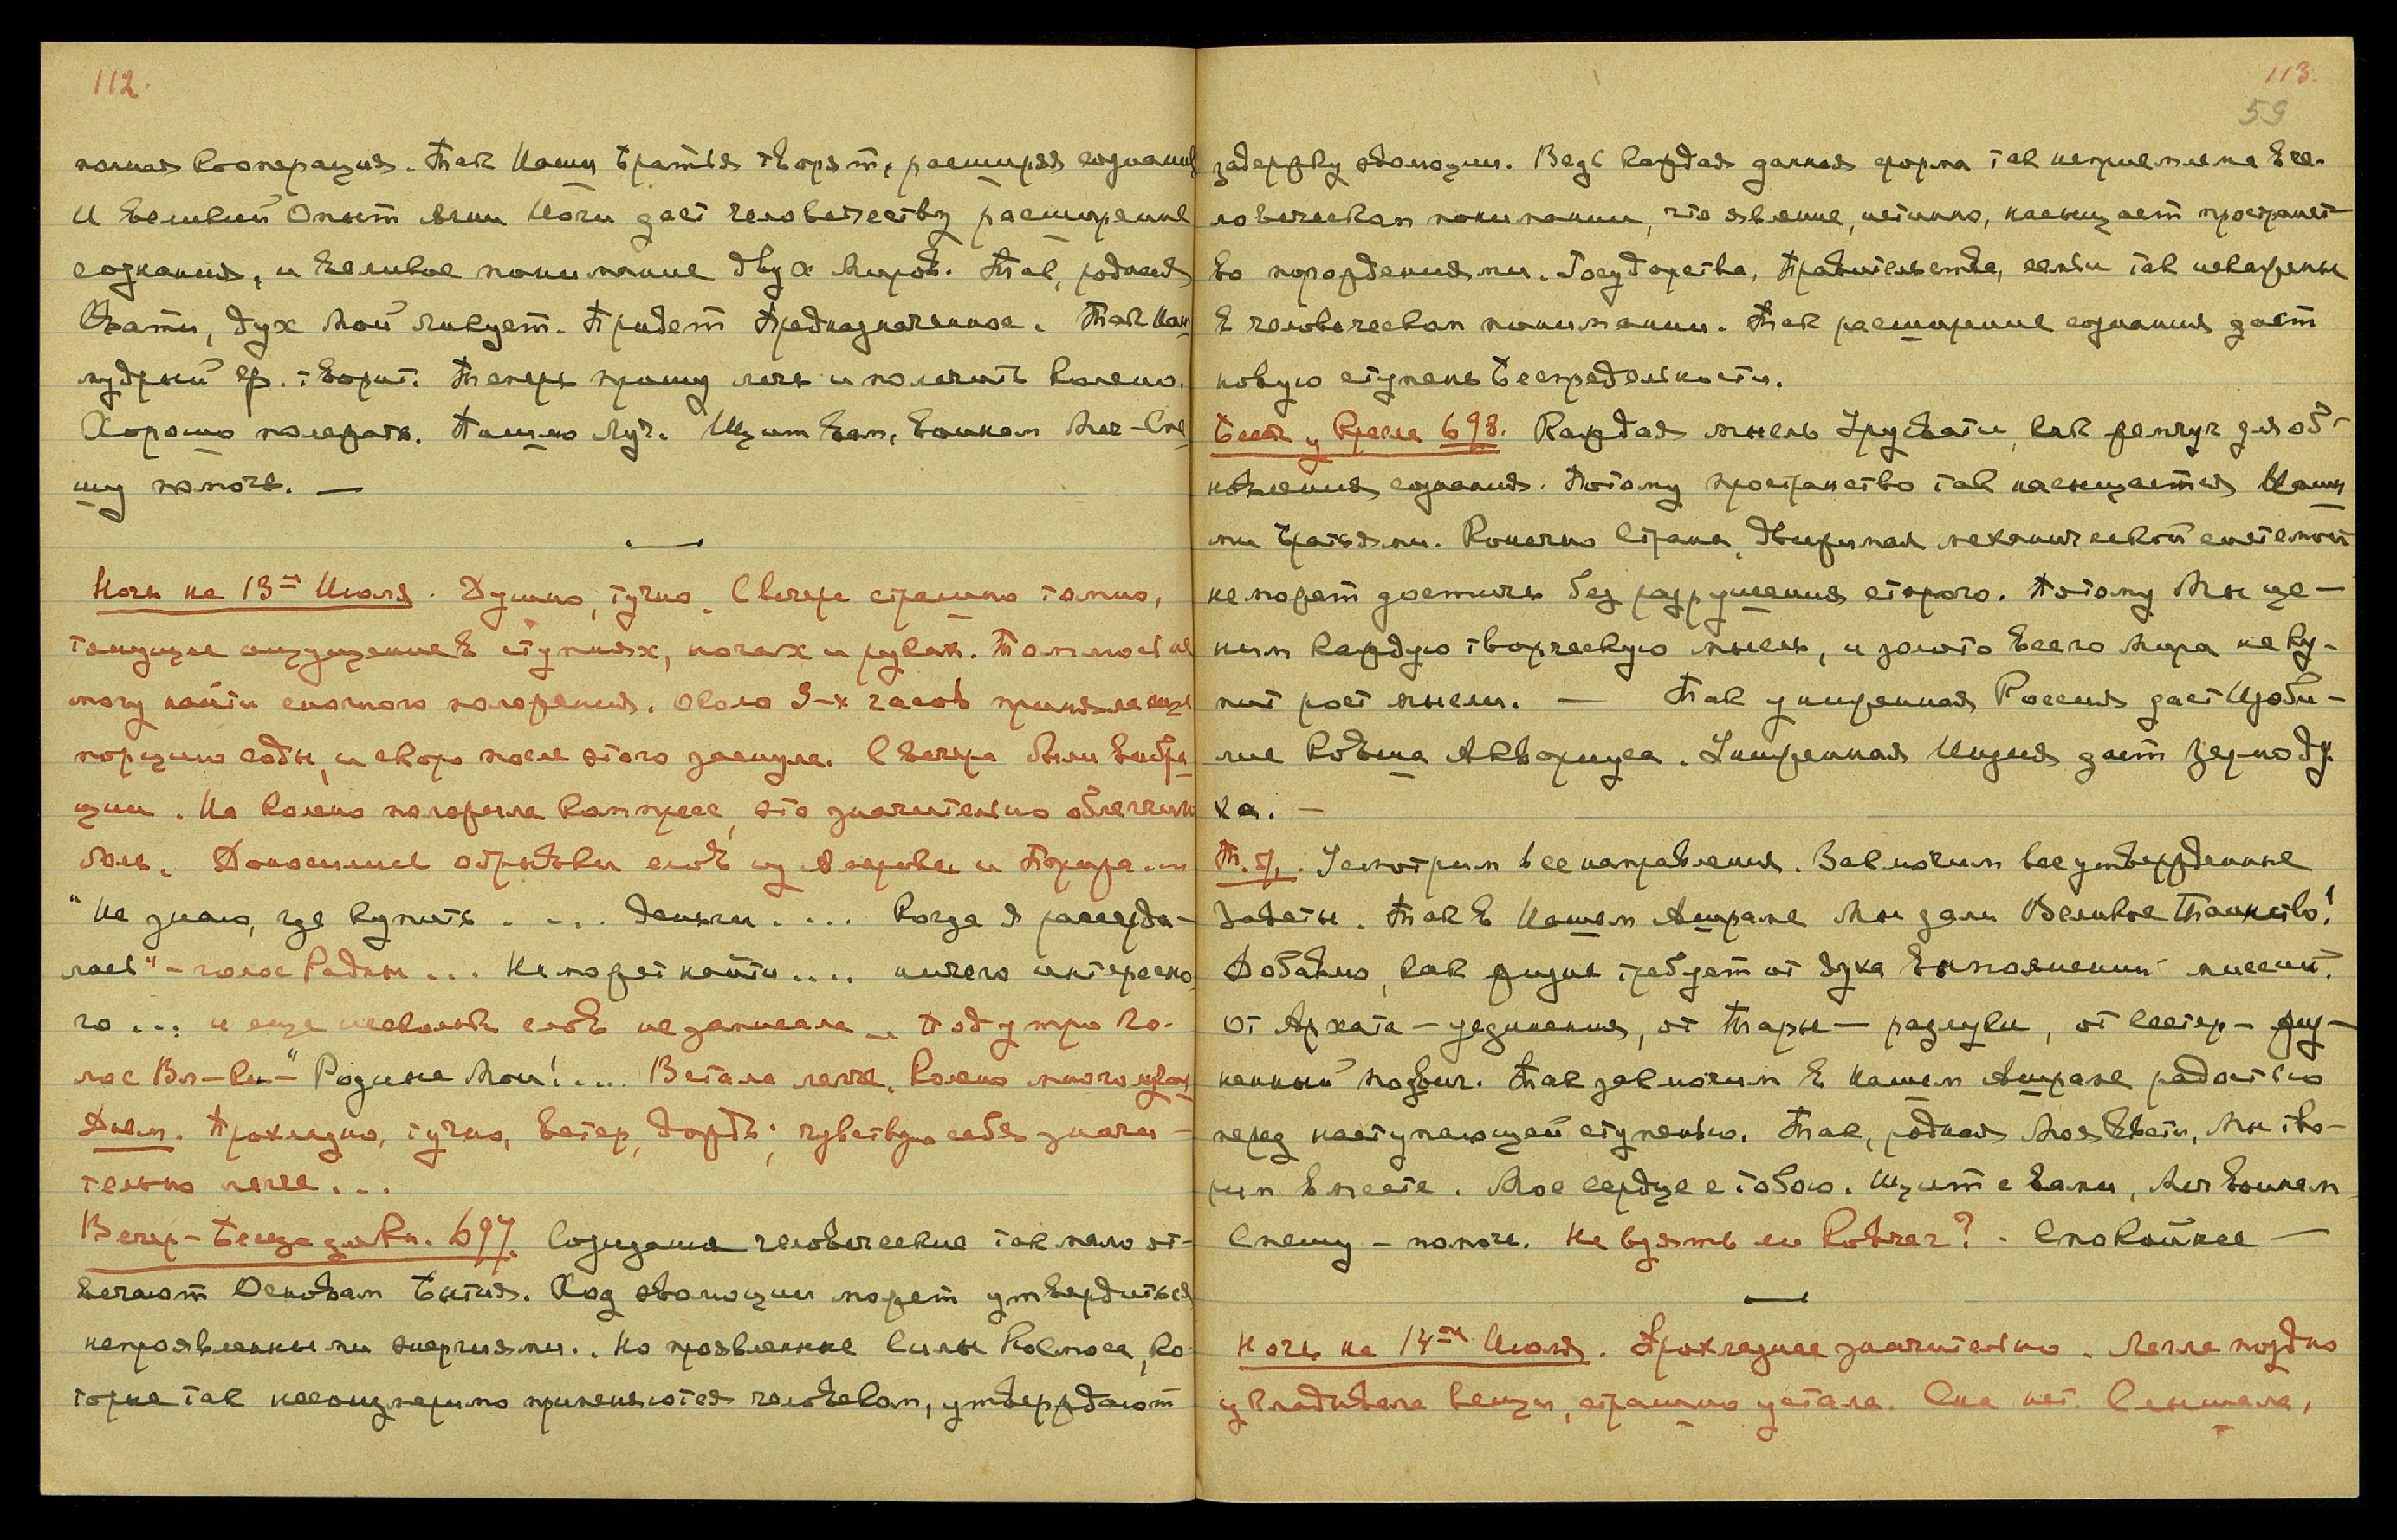 112.
полная кооперация. Так Наши Братья творят, расширяя сознание
И великий Опыт Агни Йоги дает человечеству расширение
сознания, и великое понимание двух Миров. Так, родная
Свати, дух Мой ликует. Придет Предназначенное. Так Наш
мудрый Ф. творит. Теперь прошу лечь и полечить колено.
Хорошо полежать. Пошлю Луч. Щит вам, воинам Меч - Спе
шу помочь. —
Ночь на 13-ое Июля. Душно, тучно. С вечера страшно томно,
тянущее ощущение в ступнях, ногах и руках. Томлюсь не
могу найти спокойного положения. Около 3-х часов приняла еще
порцию соды, и скоро после этого заснула. С вечера были вибра
ции. На колено положила компресс, это значительно облегчило
боль. Доносились обрывки слов из Америки и
"Не знаю, где купить . - . . деньги . . . . Когда я рассержда-
лась" - голос Радны ... Не может найти .... ничего интересно
го ... и еще несколько слов не записала — Под утро го-
лос Вл-ки - "Родные Мои! .... Встала легче. Колено много лучше
Днем. Прохладно, тучно, ветер, дождь; чувствую себя значи -
тельно легче ...
Вечер - Беседа для Кн. 697. Созидания человеческие так мало от-
вечают Основам Бытия. Ход эволюции может утвердиться
непроявленными энергиями.. Но проявленные Силы Космоса, ко-
торые так несоизмеримо применяются человеком, утверждают
113.
59
задержку эволюции. Ведь каждая данная форма так неприемлема в че-
ловеческом понимании, что явление, истинно, насыщает пространст-
во порождениями. Государства, Правительства, семьи так искажены
в человеческом понимании. Так расширение сознания дает
новую ступень Беспредельности.
Бесед. у Кресла 698. Каждая мысль Урусвати, как жемчуг для об-
новления сознания. Потому пространство так насыщается Наши
ми Братьями. Конечно Страна, движимая механической системой
не может достичь без разрушения старого. Потому Мы це -
ним каждую творческую мысль, и золото всего Мира не ку-
пит рост мысли. — Так униженная Россия дает Изоби -
лие Ковша Аквариуса. Униженная Индия дает зерно ду-
ха. —
Т. б/. Усмотрим все направления. Заключим все утвержденные
Заветы. Так в Нашем Ашраме Мы дали Великое Таинство!
Добавлю, как жизнь требует от духа выполнений миссий.
От Архата - уединения, от Тары - разлуки, от Сестер - жиз -
ненный подвиг. Так заключим в Нашем Ашраме радостью
перед наступающей ступенью. Так, родная Моя Свати, Мы тво-
рим вместе. Мое сердце с тобою. Щит с вами, Меч воинам
Спешу - помочь. Не взять ли Ковчег? - Спокойнее —
Ночь на 14-ое Июля. Прохладнее значительно. Легла поздно
укладывала вещи, страшно устала. Сна нет. Слышала,